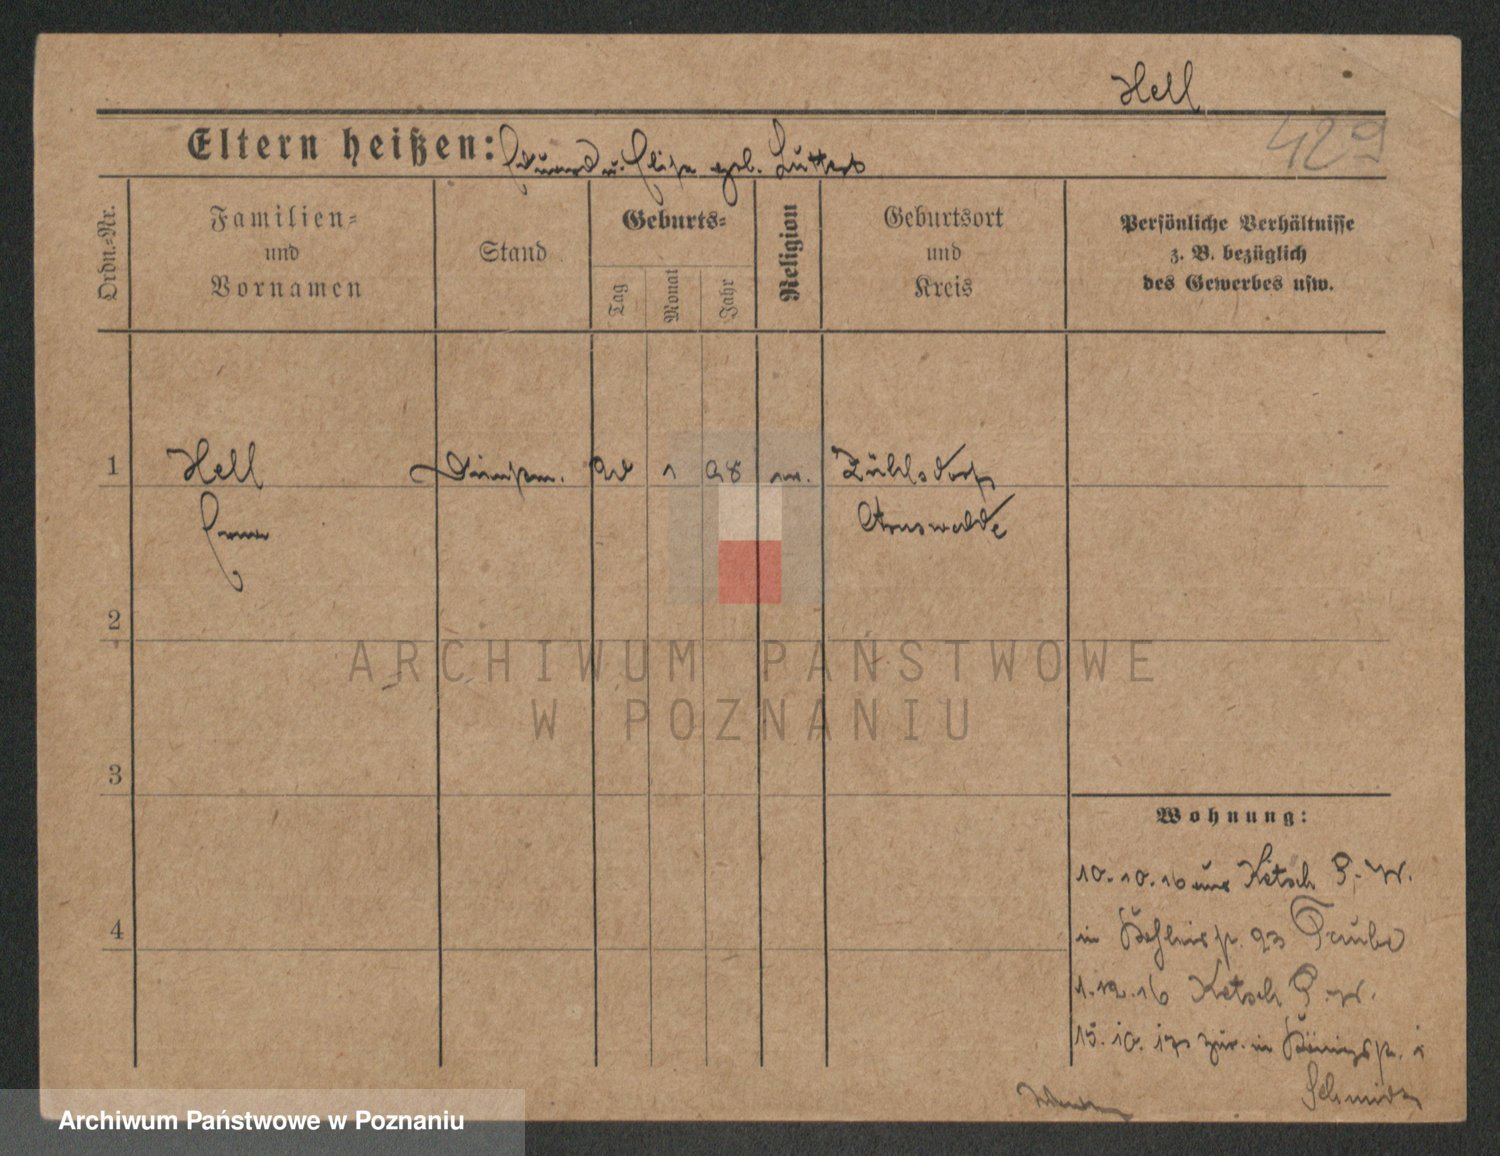 Hell
429
Eltern heißen: Eduard u. Elise geb. Luttert
Ordn.-Nr.
Familien-
und
Vornamen
Stand
Geburts-
Tag
Monat
Jahr
Religion
Geburtsort
und
Kreis
Persönliche Verhältnisse
z. B. bezüglich
des Gewerbes usw.
1
Hell
Dienstm.
1
98
Zühlsdorf
Arnswalde
2
ARCHIWUM PAŃSTWOWE
W POZNANIU
3
Wohnung:
10.10.16 aus Ketsch P.-W.
4
in 93 Traube
1.12.16 Ketsch P.-W.
15.10. zur. in
Schmidt
Archiwum Państwowe w Poznaniu